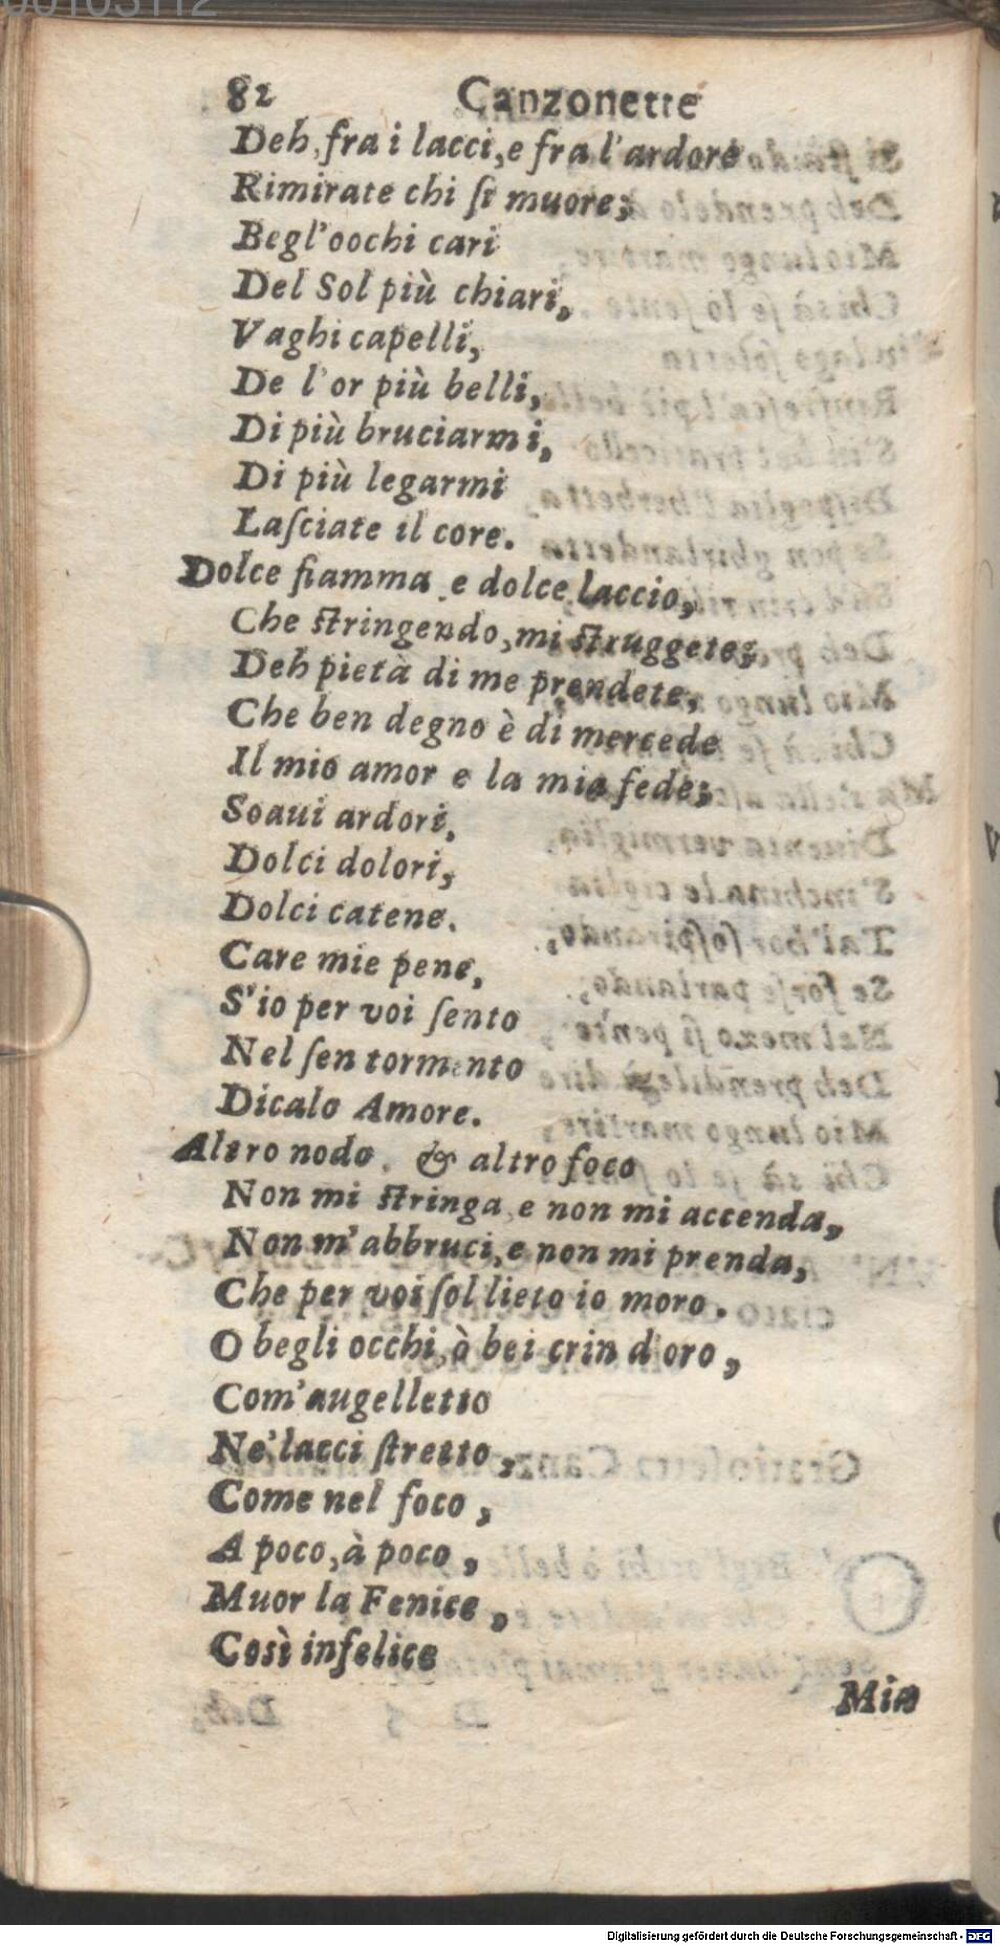 00103112
82 Canzonette
Deh, fra i lacci, e fra l'ardore
Rimirate chi ſi muore;
Begl'oochi cari
Del Sol più chiari,
Vaghi capelli,
De l'or più belli,
Di più bruciarmi,
Di più legarmi
Laſciate il core.
Dolce fiamma, e dolce laccio,
Che ſtringendo, mi ſtruggete;
Deh pietà di me prendete,
Che ben degno è di mercede
Il mio amor e la mia fede;
Soaui ardori,
Dolci dolori,
Dolci catene.
Care mie pene,
S'io per voi ſento
Nel ſen tormento
Dicalo Amore.
Altro nodo, & altro foco
Non mi ſtringa, e non mi accenda,
Non m'abbruci, e non mi prenda,
Che per voi ſol lieto io moro.
O begli occhi, ò bei crin d'oro,
Com'augelletto
Ne' lacci ſtretto,
Come nel foco,
A poco, à poco,
Muor la Fenice,
Così infelice
Mia
Digitalisierung gefördert durch die Deutsche Forschungsgemeinschaft - DFG